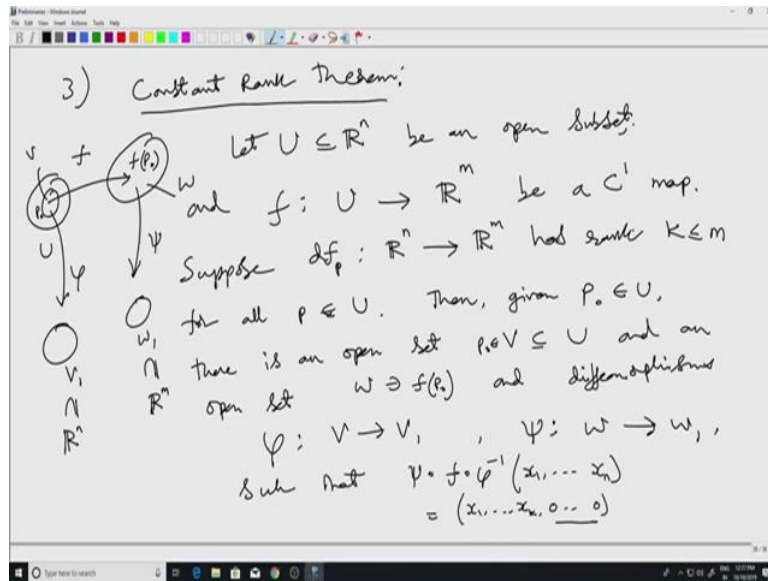 Preliminaries - Windows Journal
File Edit View Insert Actions Tools Help
3) Constant Rank Theorem:
Let U ⊆ ℝⁿ be an open subset,
and f : U → ℝᵐ be a C¹ map.
Suppose df_p : ℝⁿ → ℝᵐ has rank K ≤ m
for all p ∈ U. Then, given P₀ ∈ U,
there is an open set P₀ ∈ V ⊆ U and an
open set W ∋ f(P₀) and diffeomorphisms
φ : V → V₁ , ψ : W → W₁ ,
such that ψ ∘ f ∘ φ⁻¹ (x₁, ... xₙ)
= (x₁, ... xₖ, 0 ... 0)
V f f(P₀)
P₀ W
U φ ψ
V₁ W₁
∩ ∩
ℝⁿ ℝᵐ
Type here to search
ENG
IN